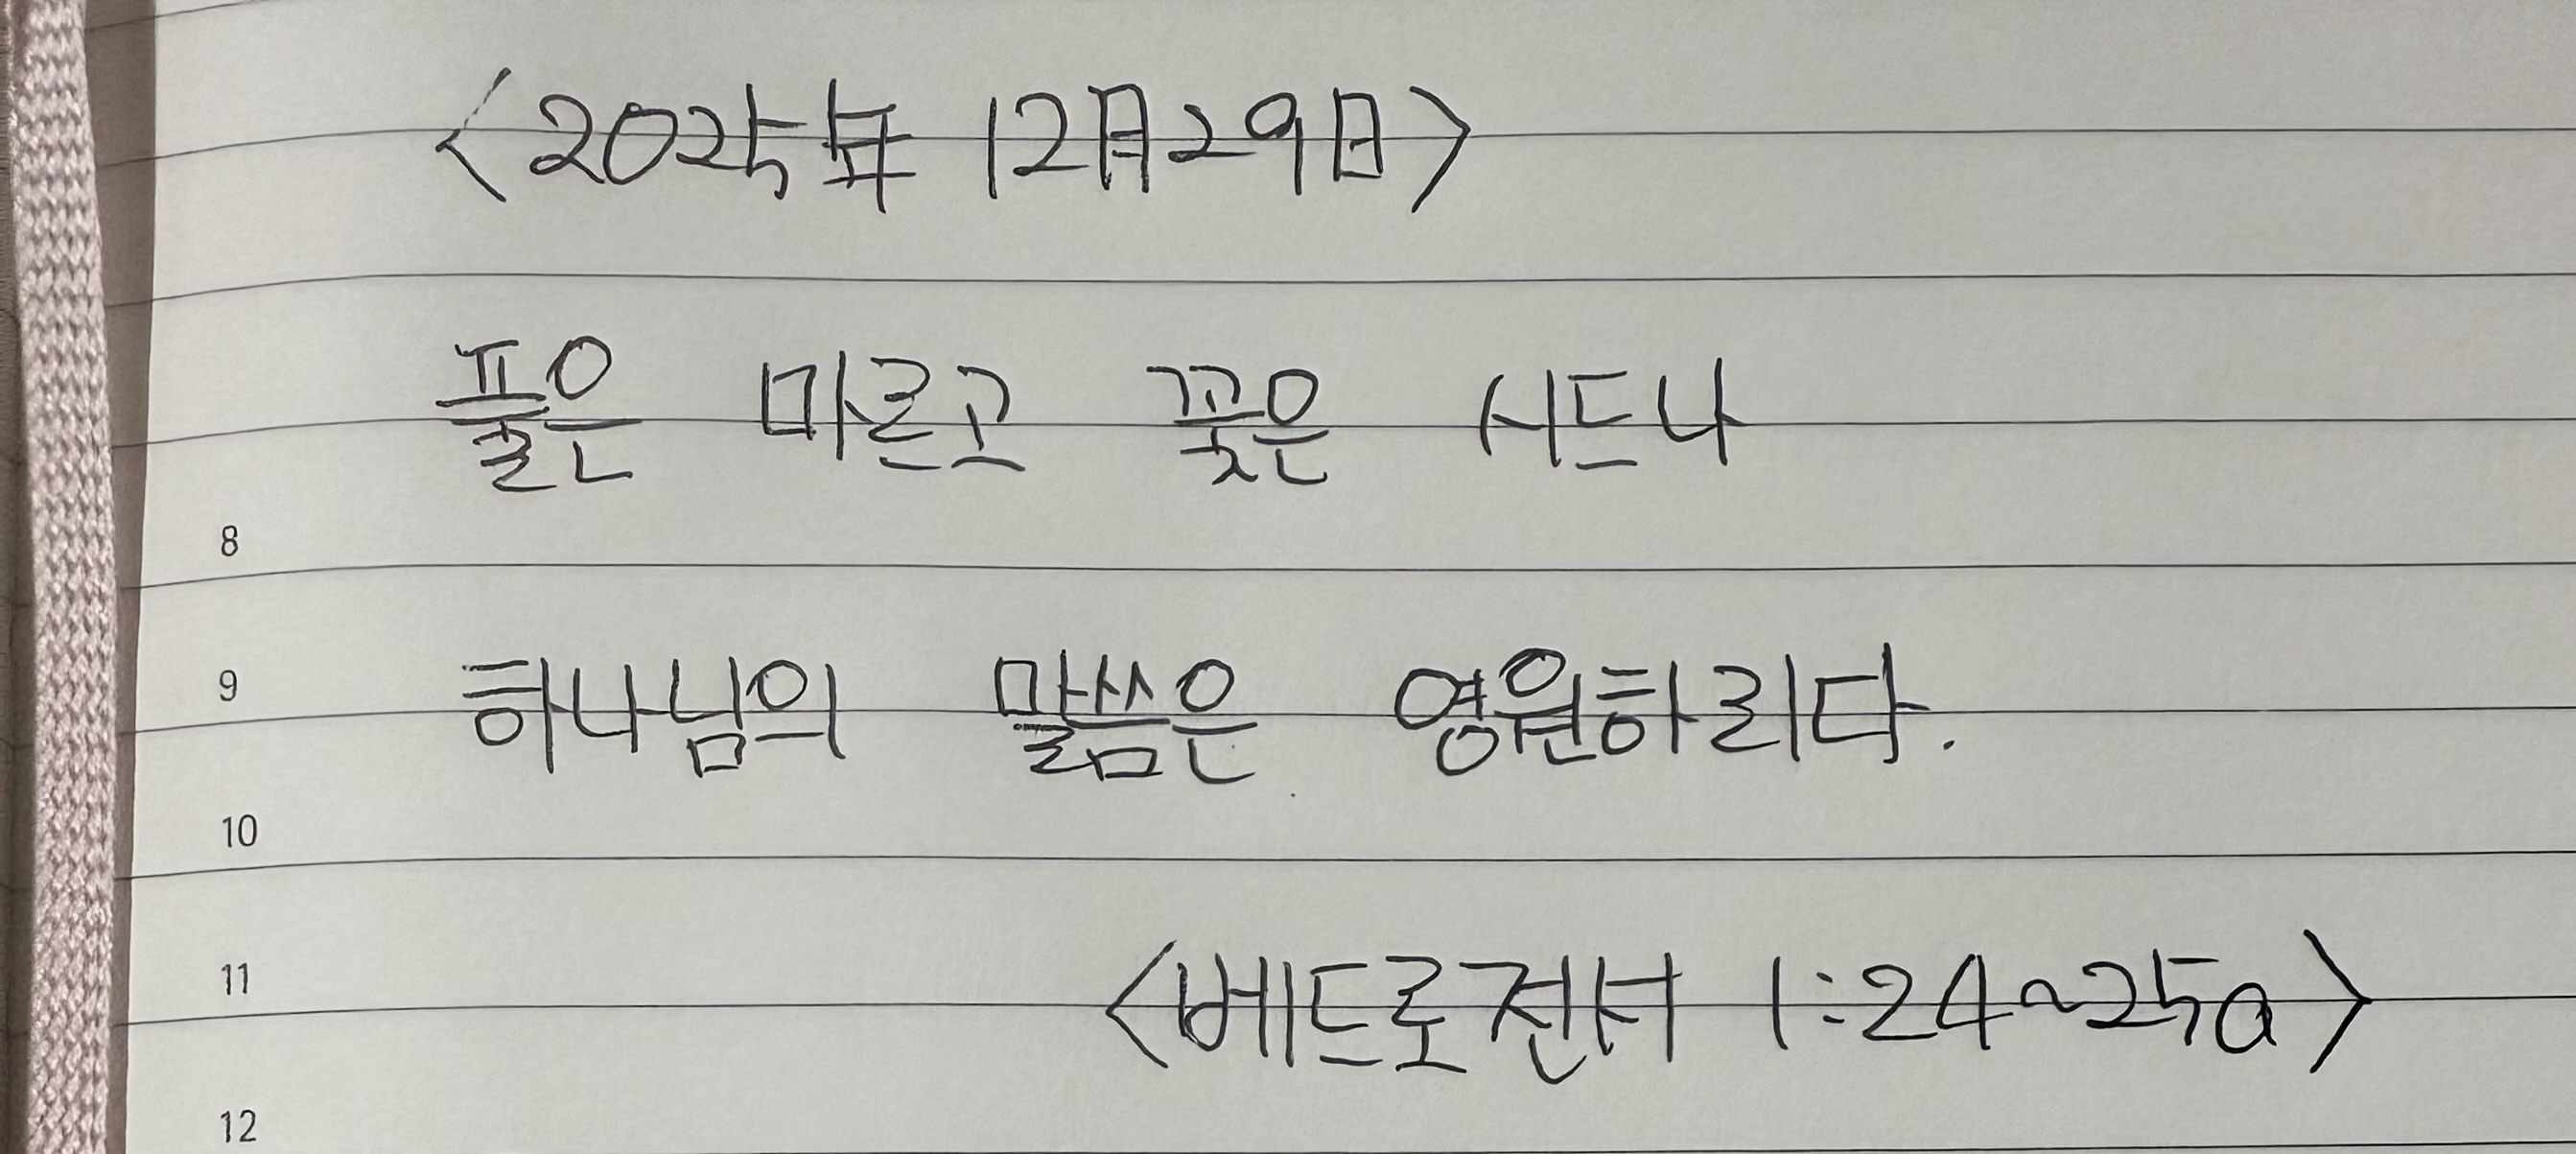 <2025年 12月29日>
풀은 마르고 꽃은 시드나
8
9 하나님의 말씀은 영원하리다.
10
11 <베드로전서 1:24~25a>
12